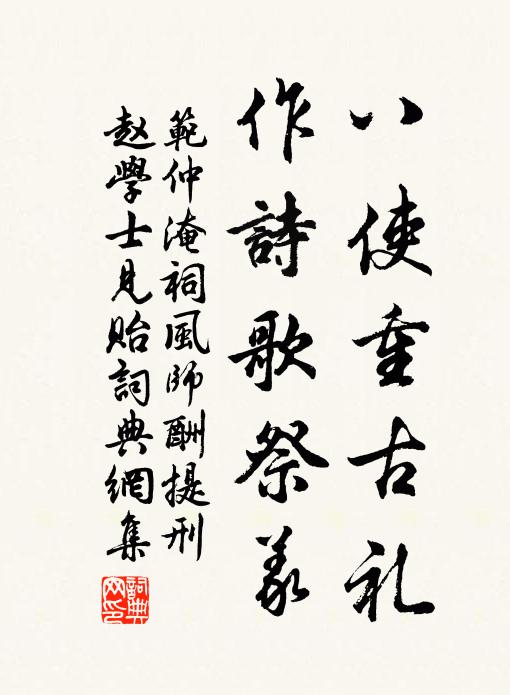 八使重古礼
作詩歌祭義
範仲淹祠風師酬提刑
赵學士見貽詞典網集
詞典